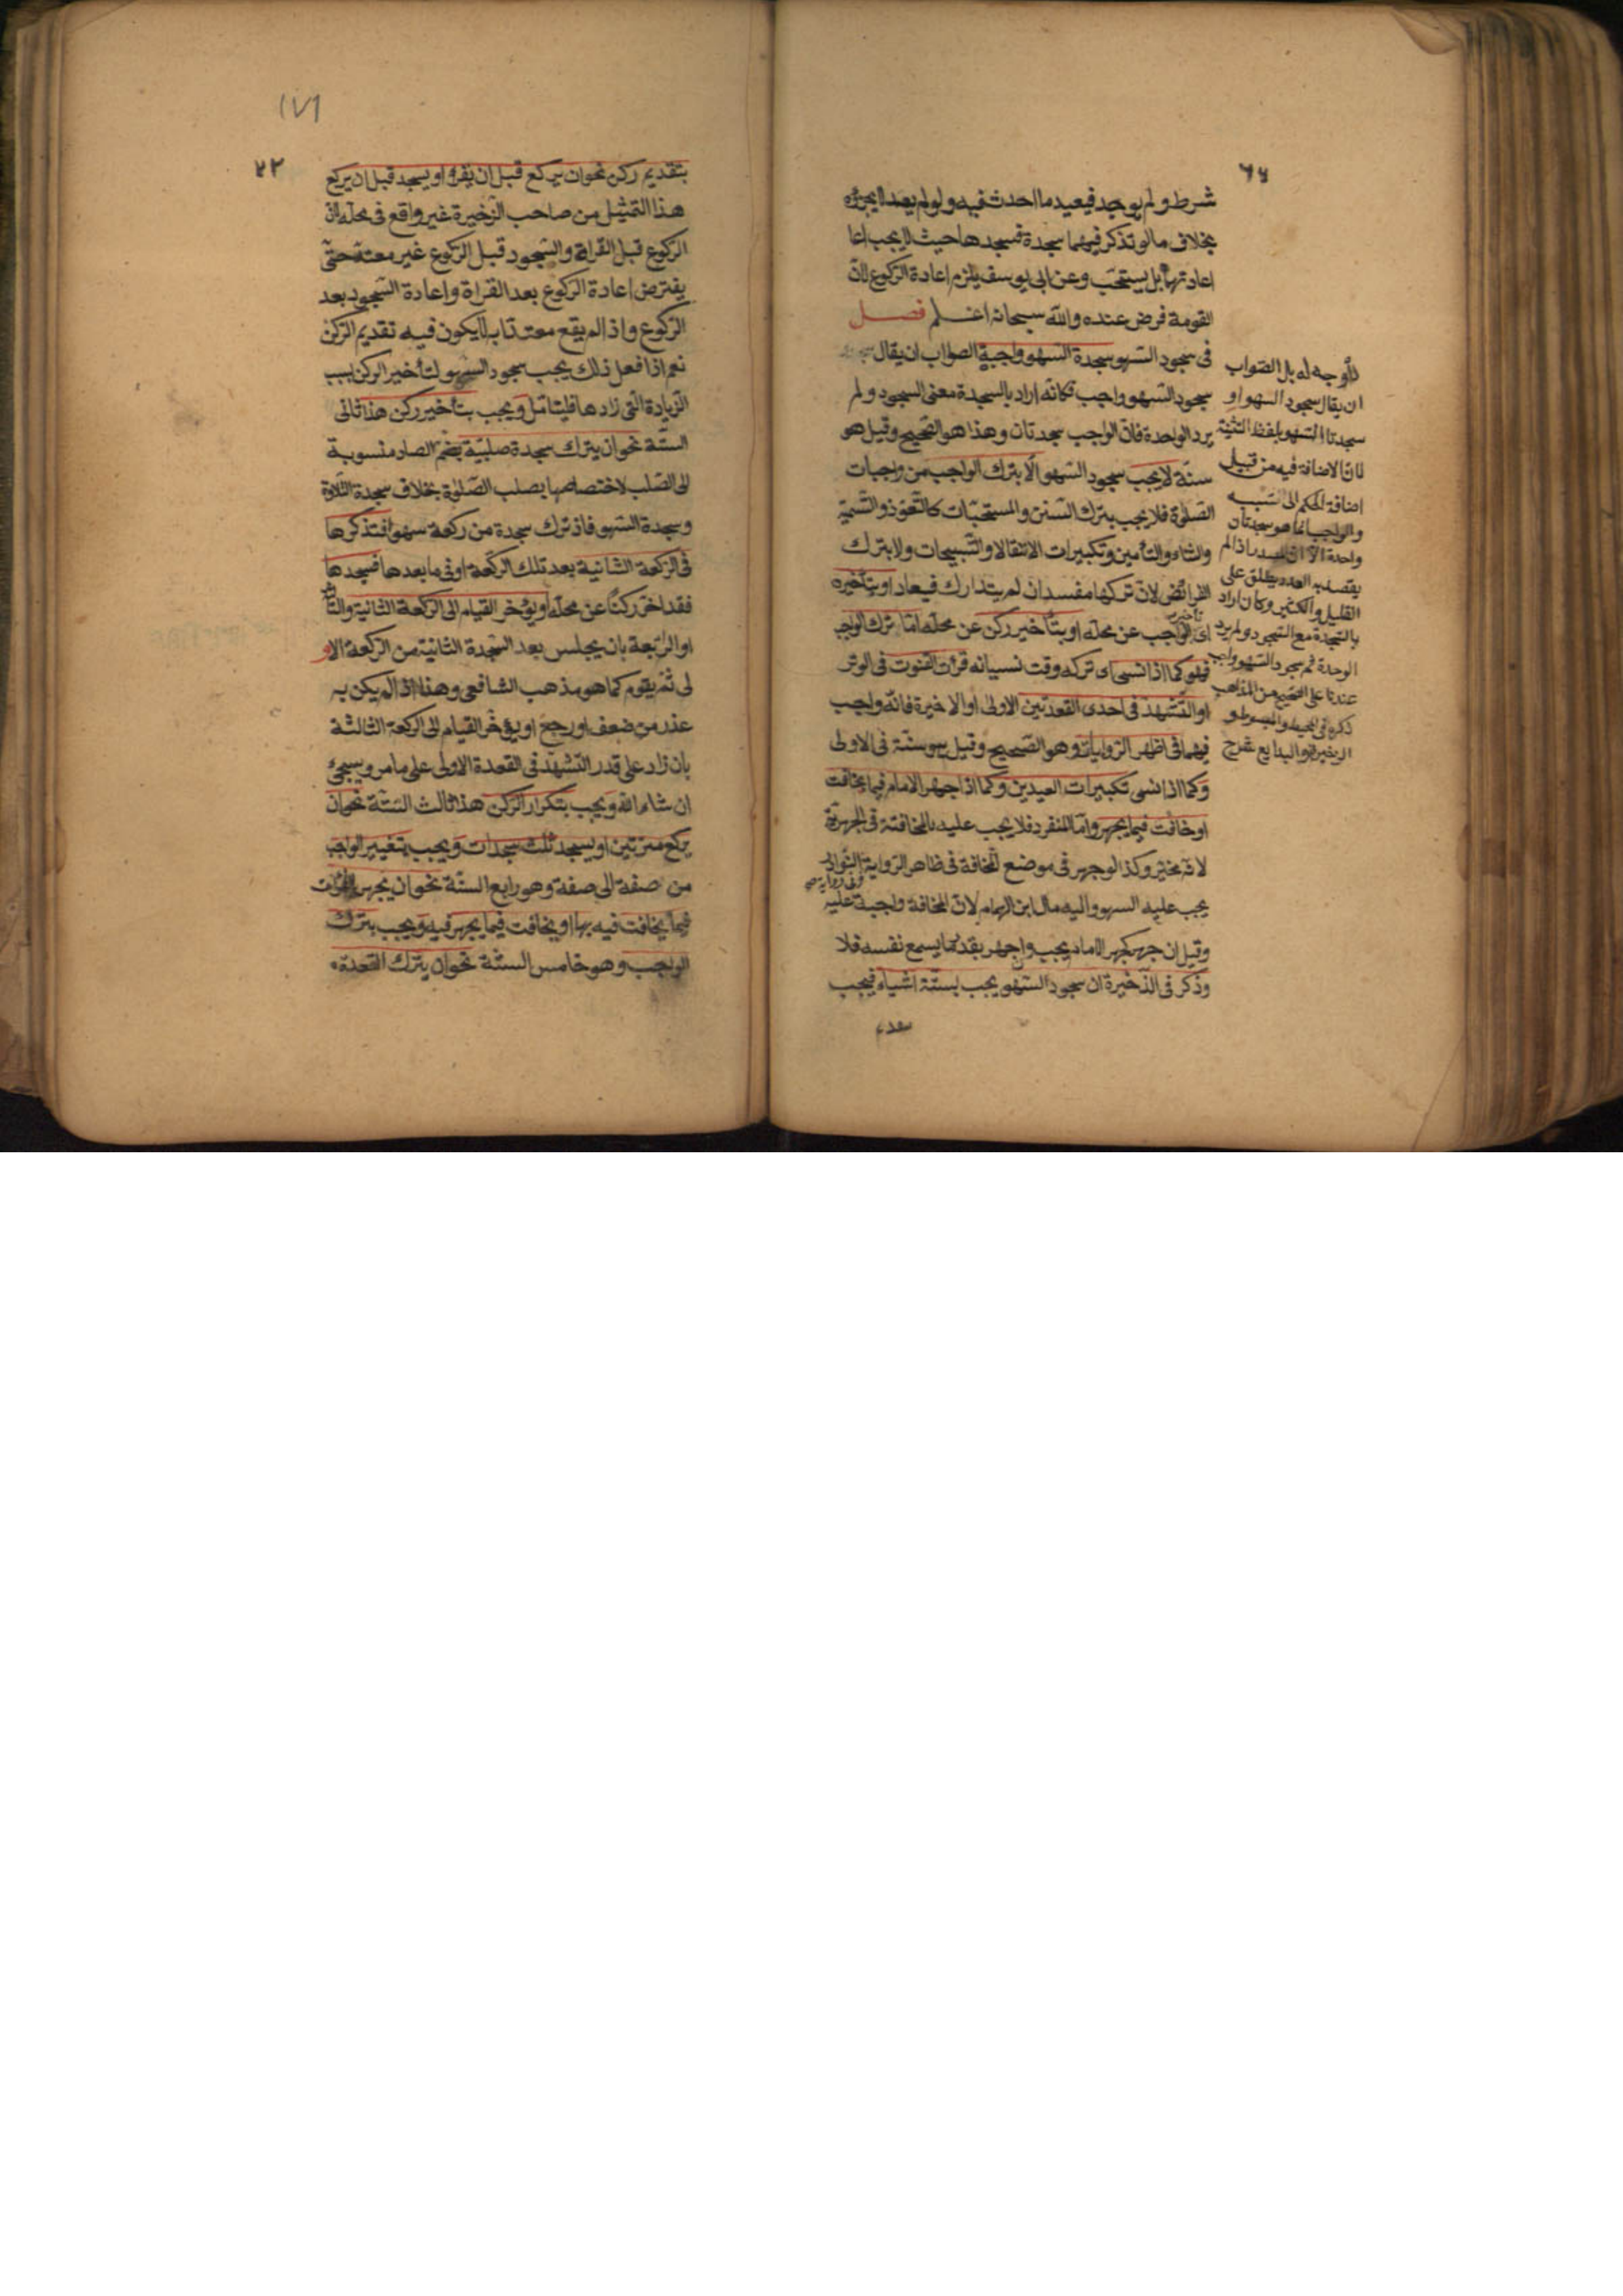 ٦٤
شرط ولم يوجد فيعيد ما احدث فيه ولو لم يعد لا يجزؤه
بخلاف ما لو تذكر فيهما سجدة فسجدها حيث لا يجب اعا
اعادتها بل يستحب وعن ابى يوسف يلزم اعادة الركوع لان
القومة فرض عنده والله سبحانه اعلم فصل
فى سجود السهو سجدة السهو واجبة الصواب ان يقال
سجود السهو واجب فكانه اراد بالسجدة معنى السجود ولم
يرد الواحدة فان الواجب سجدتان وهذا هو الصحيح وقيل هو
سنة لا يجب سجود السهو الا بترك الواجب من واجبات
الصلوة فلا يجب بترك السنن والمستحبات كالتعوذ والتسمية
والثناء والتأمين وتكبيرات الانتقالا والتسبيحات ولا بترك
الفرائض لان تركها مفسد ان لم يتدارك فيعاد او بتأخيره
اى تأخير الواجب عن محله او بتأخير ركن عن محله اما ترك الواجب
فهو كما اذا نسى اى تركه وقت نسيانه قرأت القنوت فى الوتر
او التشهد فى احدى القعدتين الاولى او الاخيرة فانه واجب
فيهما فى اظهر الروايات وهو الصحيح وقيل هو سنة فى الاولى
وكما اذا نسى تكبيرات العيدين وكما اذا جهر الامام فيما يخافت
او خافت فيما يجهر واما المنفرد فلا يجب عليه بالمخافتة فى الجهرية
لانه مخير وكذا لو جهر فى موضع المخافة فى ظاهر الرواية
وفى رواية النوادر
يجب عليه السهو واليه مال ابن الهمام لان المخافة واجبة عليه
وقيل ان جهر كجهر الامام يجب وان جهر بقدر ما يسمع نفسه فلا
وذكر فى الذخيرة ان سجود السهو يجب بستة اشياء فيجب
لا وجه له بل الصواب
ان يقال سجود السهو او
سجدتا السهو بلفظ التثنية
لان الاضافة فيه من قبيل
اضافة الحكم الى السبب
والواجب انما هو سجدتان
واحدة الا ان المصدر اذا لم
يقصد به العدد يطلق على
القليل والكثير وكان اراد
بالسجدة مع السجود ولم يرد
الوحدة ثم سجود السهو واجب
عندنا على الصحيح من المذاهب
ذكره فى المحيط والمبسوط و
الذخيرة والبدايع
١٧١
٢٢
بتقديم ركن نحو ان يركع قبل ان يقرأ او يسجد قبل ان يركع
هذا التمثيل من صاحب الذخيرة غير واقع فى محله لان
الركوع قبل القرأة والسجود قبل الركوع غير معتد حتى
يفترض اعادة الركوع بعد القراة واعادة السجود بعد
الركوع واذا لم يقع معتدا به لا يكون فيه تقديم الركن
نعم اذا فعل ذلك يجب سجود السهو لتأخير الركن بسبب
الزيادة التى زادها فليتأمل ويجب بتأخير ركن هذا ثانى
الستة نحو ان يترك سجدة صلبية بضم الصاد منسوبة
الى الصلب لاختصاصها بصلب الصلوة بخلاف سجدة التلاوة
وسجدة السهو فاذ ترك سجدة من ركعة سهوا فتذكرها
فى الركعة الثانية بعد تلك الركعة او فى ما بعدها فسجدها
فقد اخر ركنا عن محله او يؤخر القيام الى الركعة الثانية والثالثة
او الرابعة بان يجلس بعد السجدة الثانية من الركعة الاو
لى ثم يقوم كما هو مذهب الشافعى وهذا اذا لم يكن به
عذر من ضعف او رجع او يؤخر القيام الى الركعة الثالثة
بان زاد على قدر التشهد فى القعدة الاولى على ما مر وسيجئ
ان شاء الله ويجب بتكرار الركن هذا ثالث الستة نحو ان
يركع مرتين او يسجد ثلث سجدات ويجب بتغيير الواجب
من صفة الى صفة وهو رابع الستة نحو ان يجهر
فيما يخافت فيه بها او يخافت فيما يجهر فيه ويجب بترك
الواجب وهو خامس الستة نحو ان يترك القعدة